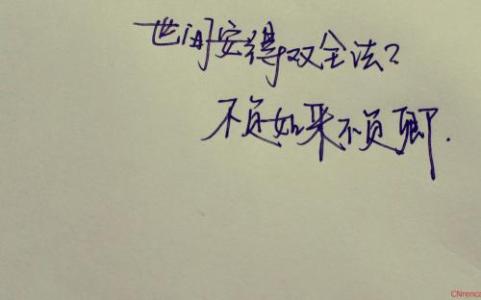 世间安得双全法?
不负如来不负卿.
CNrencai